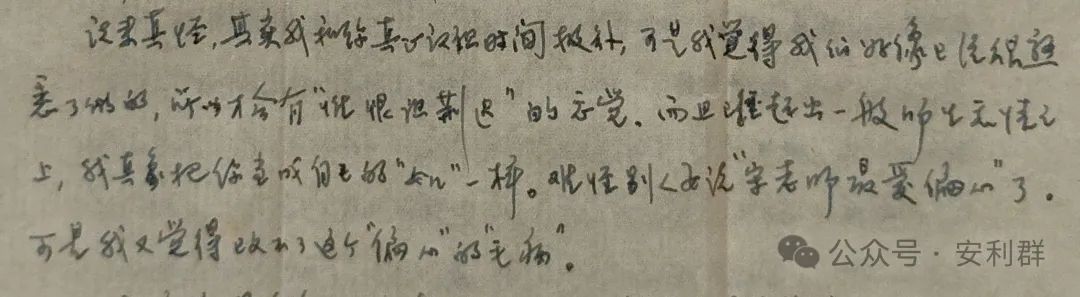 说来真怪,其实我和你真正认识时间极补,可是我觉得我们好像已经很熟
悉了似的,所以才会有“恍恨认识迟”的示觉。而且已经超出一般师生之情之
上,我真象把你当成自己的“女儿”一样。难怪别人要说“宇老师最爱偏心”了。
可是我又觉得改不了这个“偏心”的“毛病”。
公众号·安利群